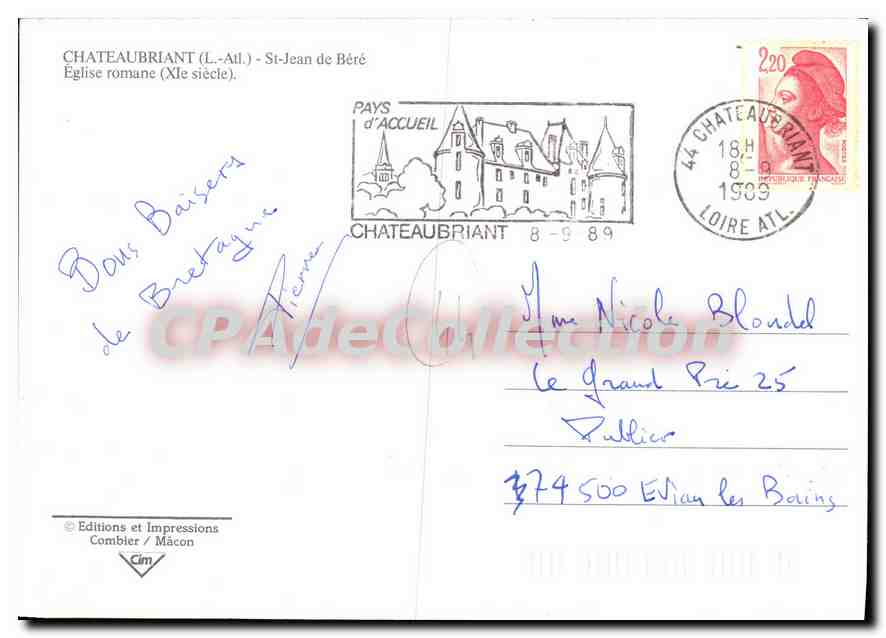 CHATEAUBRIANT (L.-Atl.) - St-Jean de Béré
Église romane (XIe siècle).
PAYS
d'ACCUEIL
CHATEAUBRIANT 8-9 89
44 CHATEAUBRIANT
18H
8-9
1989
LOIRE ATL.
2,20
REPUBLIQUE FRANÇAISE
Bons Baisers
de Bretagne
Pierre
CPAdeCollection
Mme Nicole Blondel
le Grand Pré 25
Publier
74 500 Evian les Bains
© Editions et Impressions
Combier / Mâcon
Cim